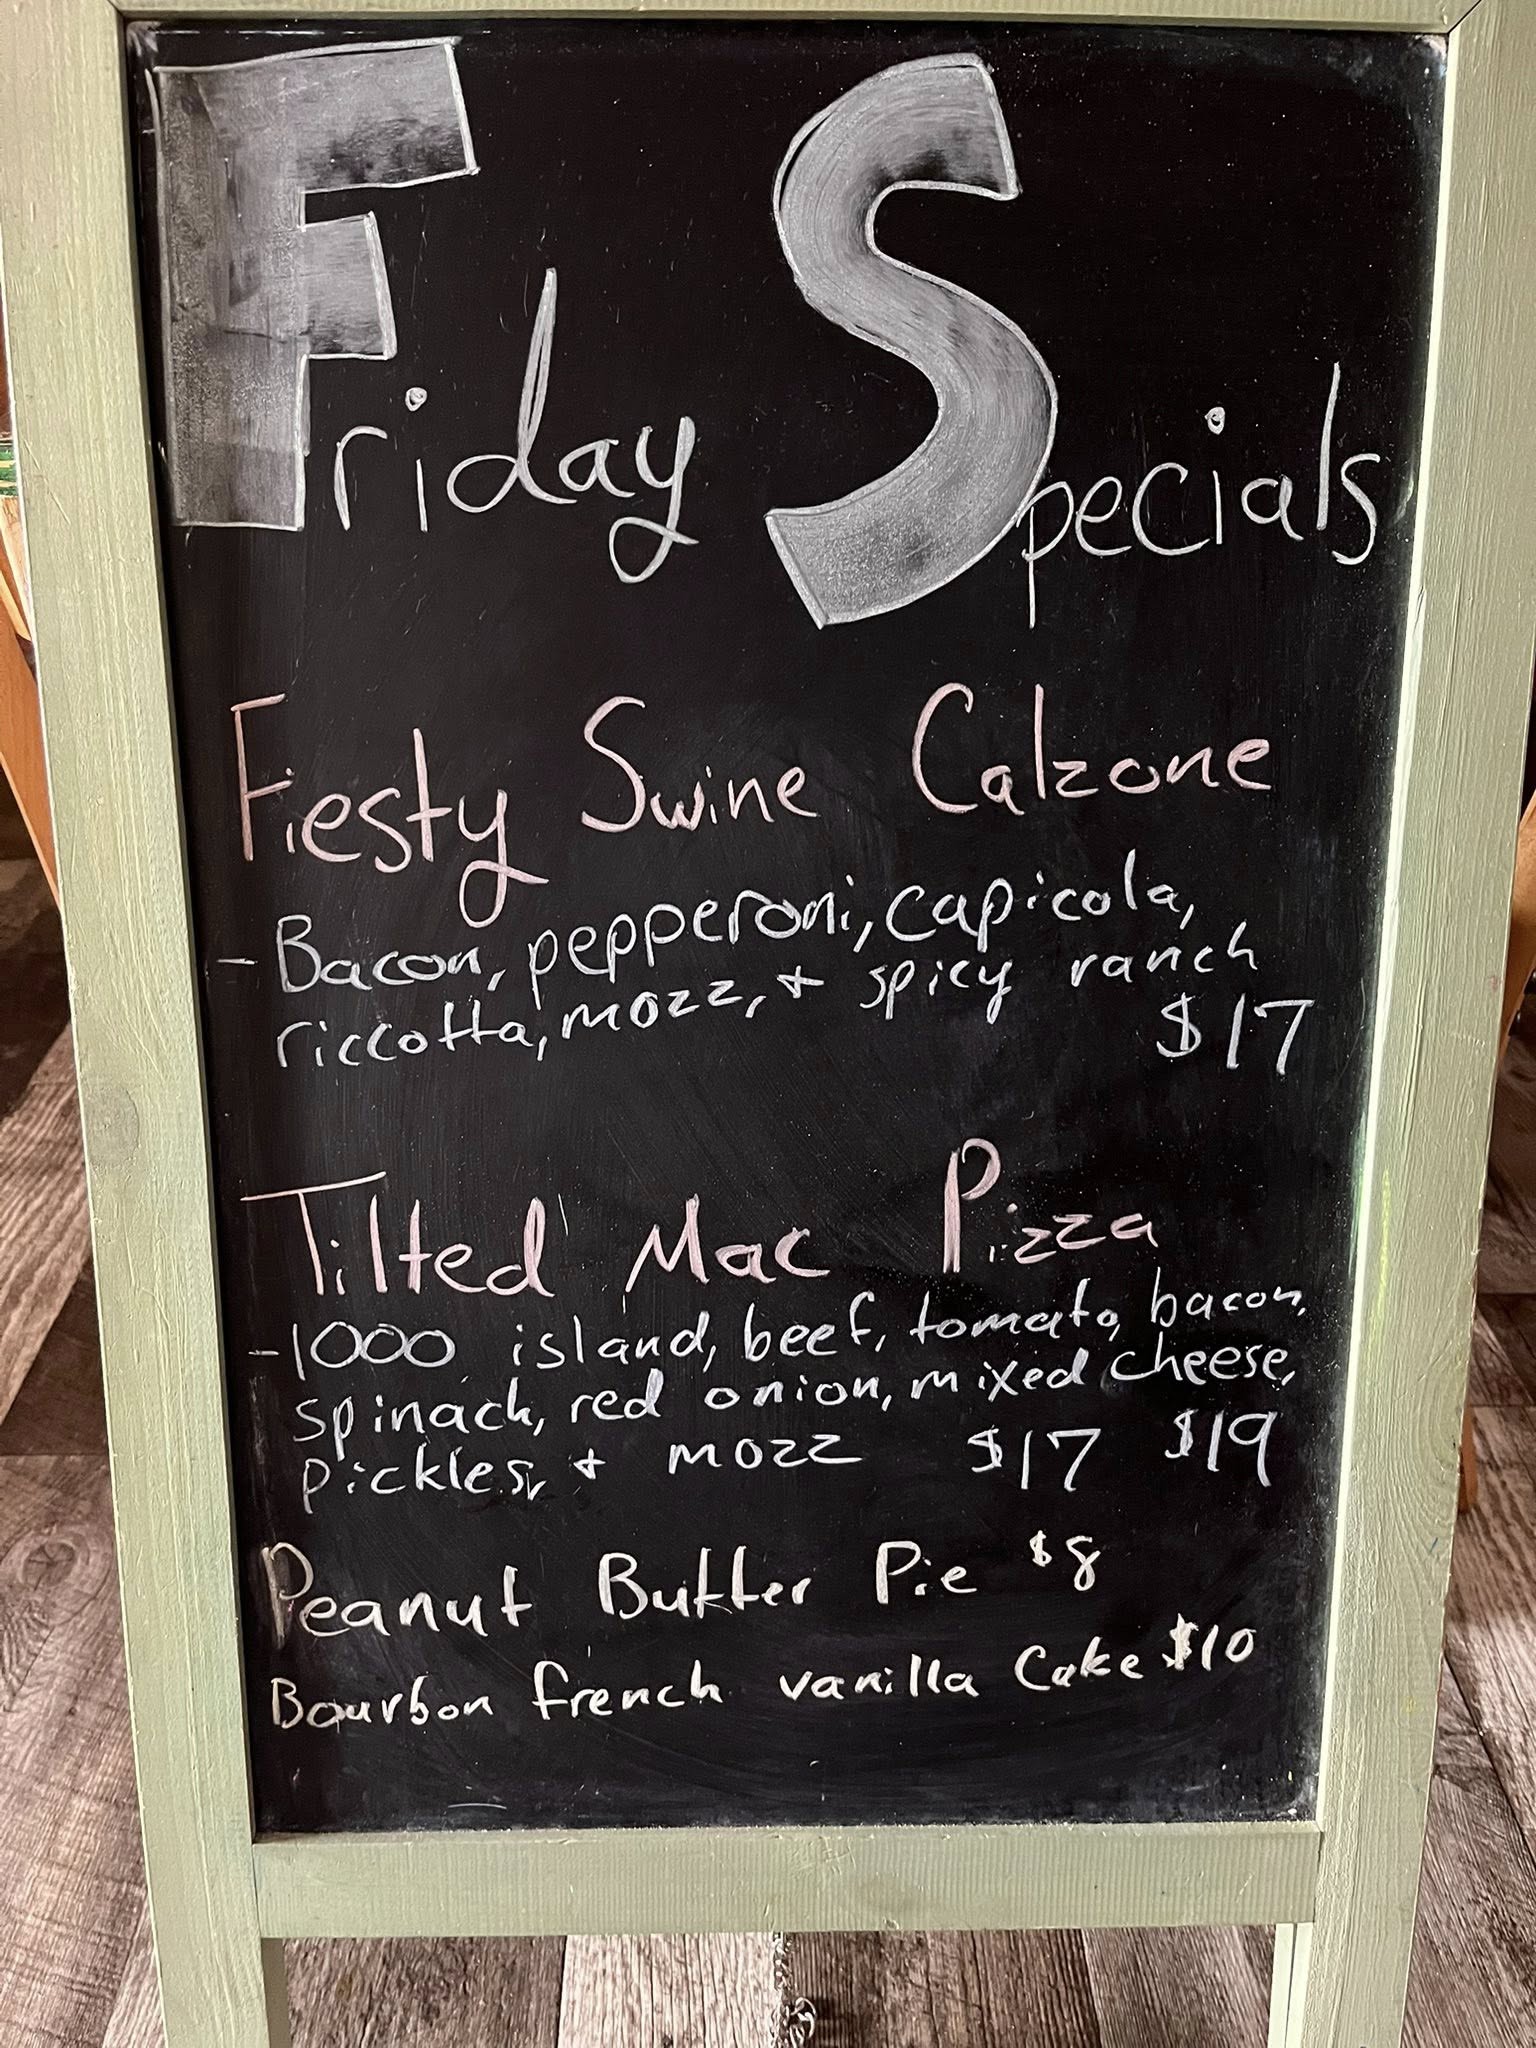 Friday Specials
Fiesty Swine Calzone
- Bacon, pepperoni, capicola,
riccotta, mozz, + spicy ranch
$17
Tilted Mac Pizza
-1000 island, beef, tomato, bacon,
spinach, red onion, mixed cheese,
pickles, + mozz $17 $19
Peanut Butter Pie $8
Bourbon french vanilla Cake $10